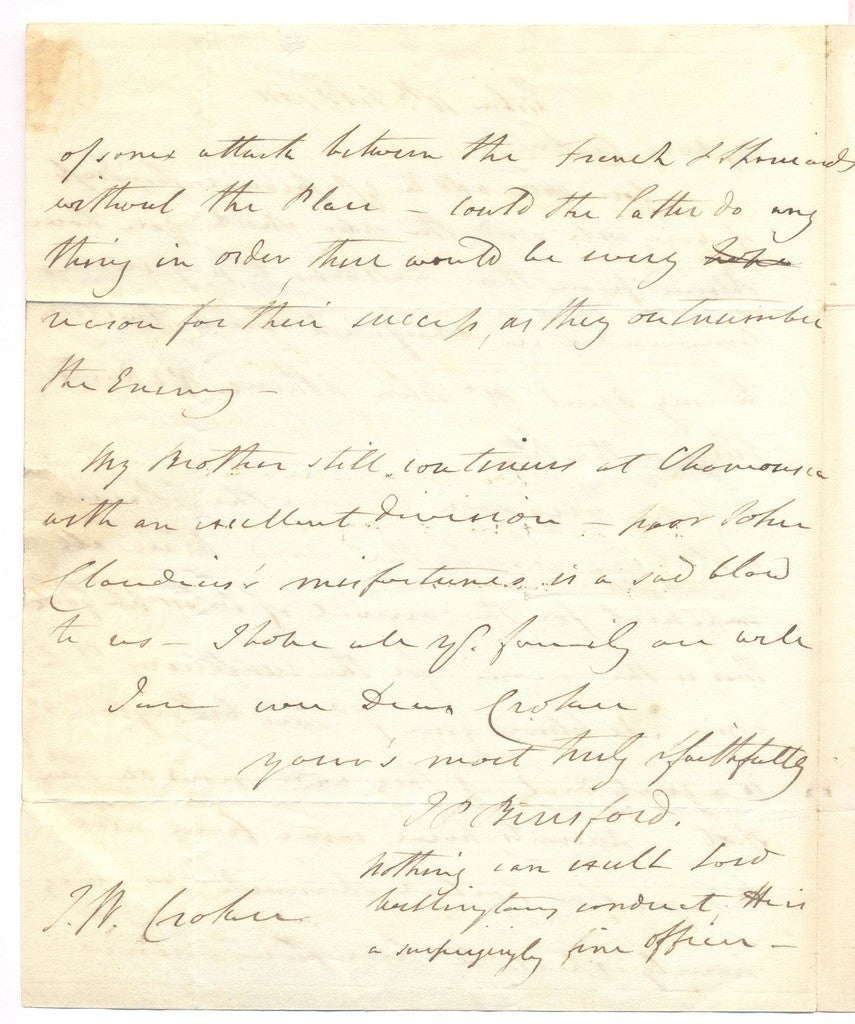 of some attack between the French & Spaniards
without the Place - could the latter do any
thing in order, there would be every hope
reason for their success, as they outnumber
the Enemy -
My Brother still continues at Chamusca
with an excellent division - poor John
Claudius's misfortunes is a sad blow
to us - I hope all yr. family are well
I am ever Dear Croker
your's most truly & faithfully
J P Beresford.
nothing can excell Lord
Wellingtons conduct, He is
a surprizingly fine officer -
J. W. Croker